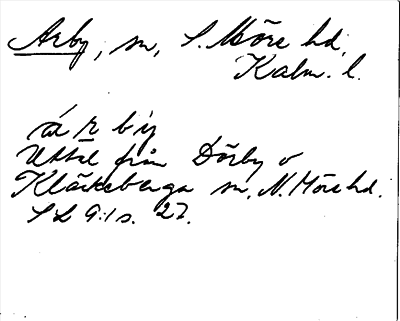 Arby, sn, S. Möre hd,
Kalm. l.
a r b y
Uttal från Dörby o
Kläckeberga sn, N. Möre hd.
SL 9:1 s. 27.